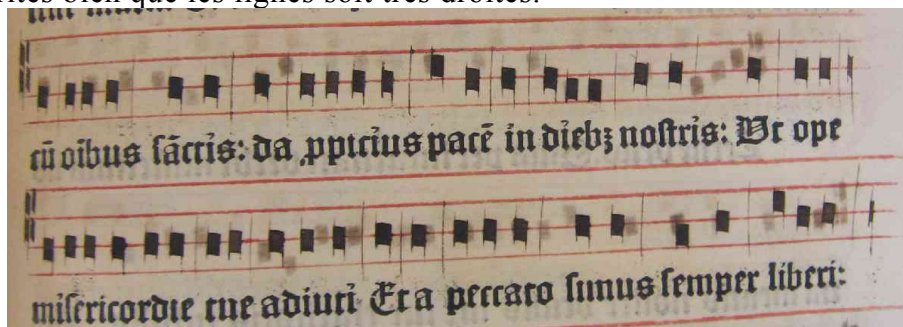 rites bien que les lignes soit très droites.
cū oībus sāctis: da ꝓpicius pacē in diebꝫ nostris: Ut ope
misericordie tue adiuti Et a peccato simus semper liberi: